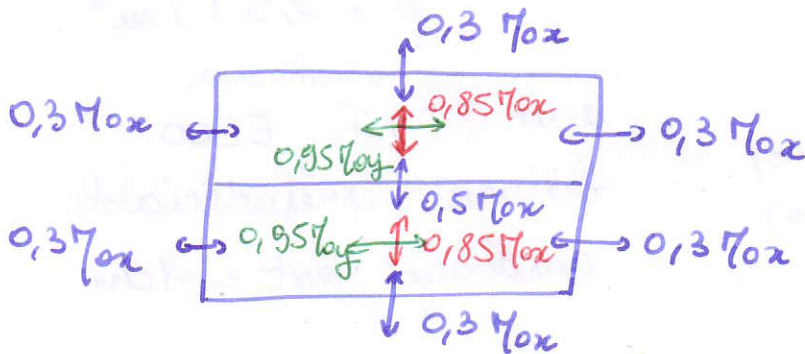 0,3 Mox
0,3 Mox 0,85 Mox 0,3 Mox
0,95 Moy
0,5 Mox
0,3 Mox 0,95 Moy 0,85 Mox 0,3 Mox
0,3 Mox